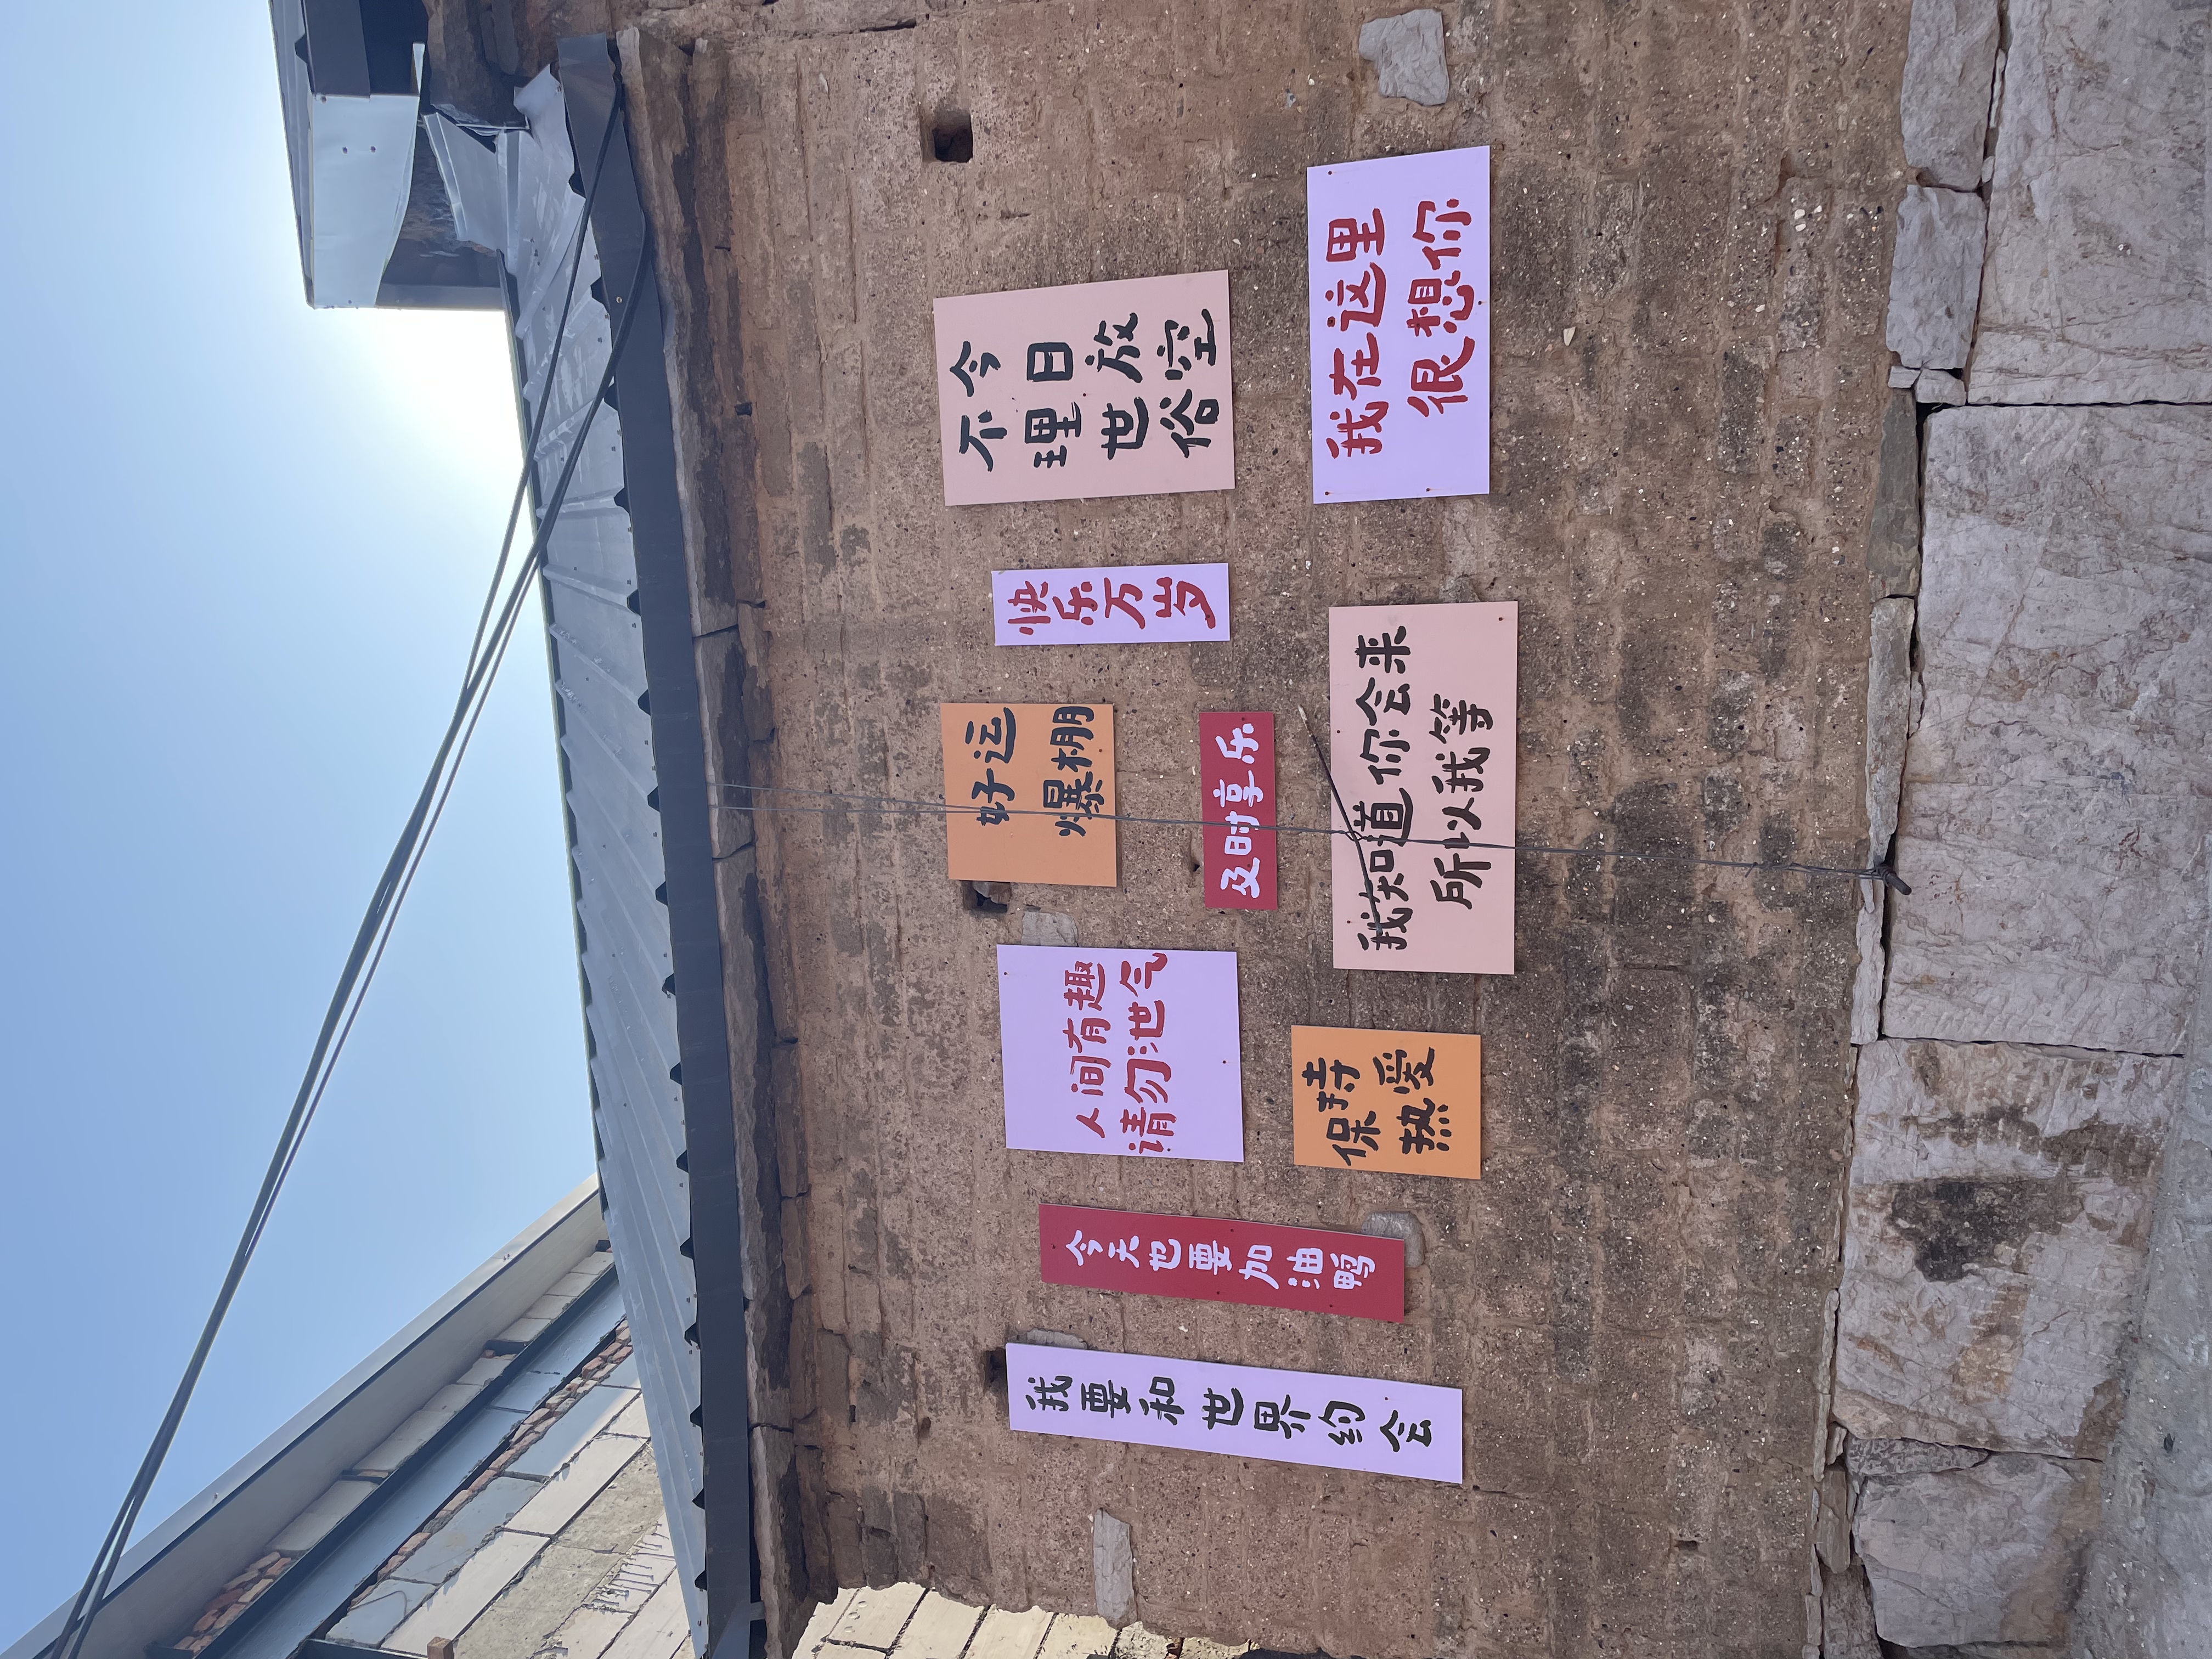 我要和世界约会
今天也要加油鸭
人间有趣
请勿泄气
保持
热爱
好运
爆棚
及时享乐
我知道你会来
所以我等
快乐万岁
今日放空
不理世俗
我在这里
很想你